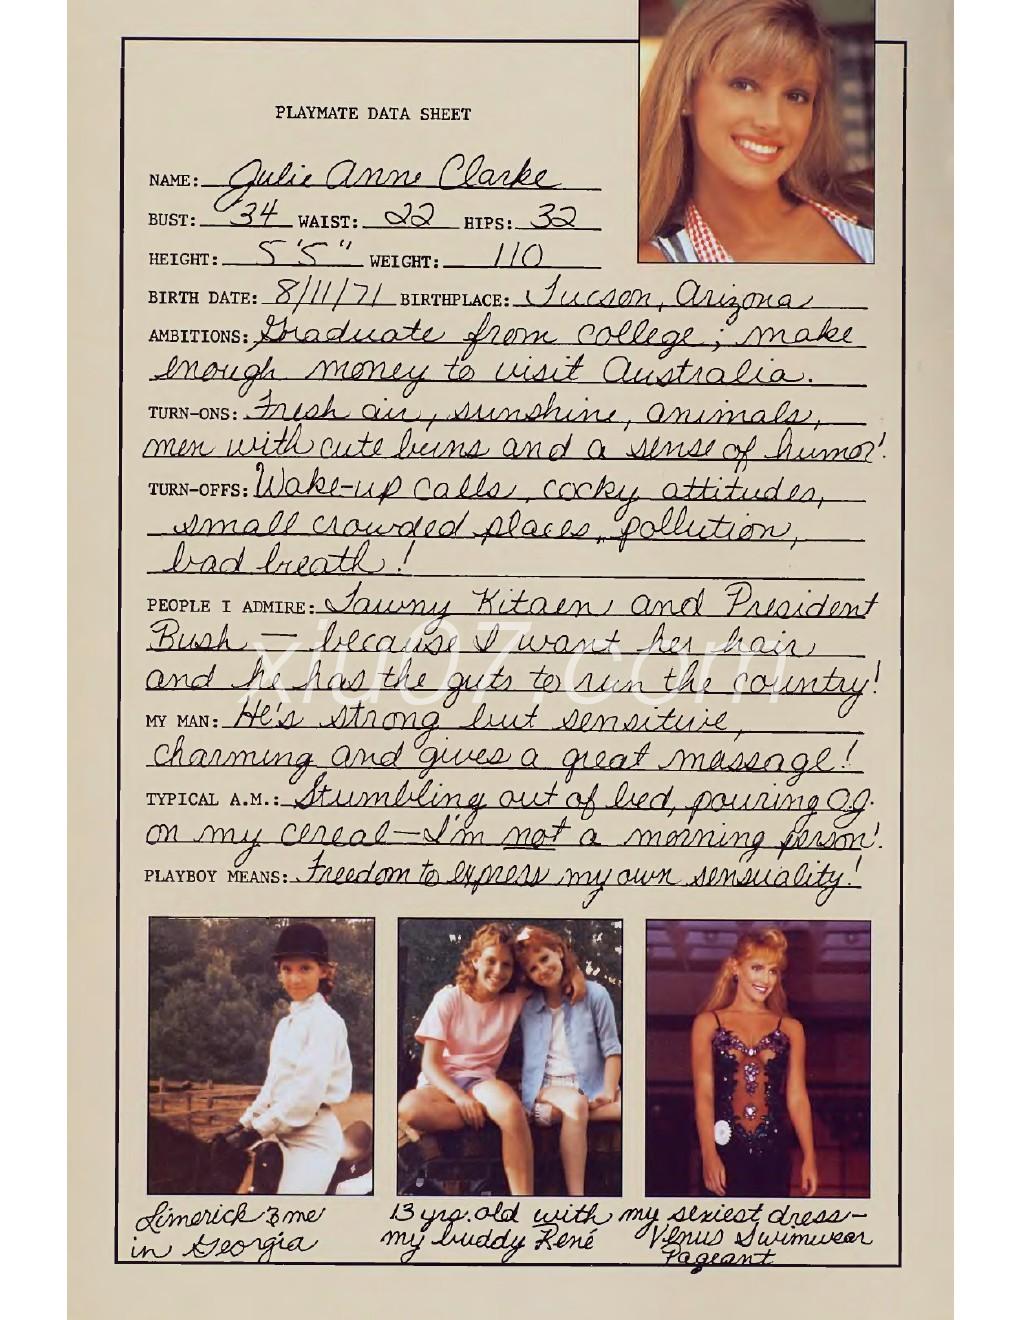 PLAYMATE DATA SHEET
NAME: Julie Anne Clarke
BUST: 34 WAIST: 22 HIPS: 32
HEIGHT: 5'5" WEIGHT: 110
BIRTH DATE: 8/11/71 BIRTHPLACE: Tucson, Arizona
AMBITIONS: Graduate from college; make
enough money to visit Australia.
TURN-ONS: Fresh air, sunshine, animals,
men with cute buns and a sense of humor!
TURN-OFFS: Wake-up calls, cocky attitudes,
small crowded places, pollution,
bad breath!
PEOPLE I ADMIRE: Tawny Kitaen and President
Bush — because I want her hair
and he has the guts to run the country!
xiu07.com
MY MAN: He's strong but sensitive,
charming and gives a great massage!
TYPICAL A.M.: Stumbling out of bed, pouring O.J.
on my cereal—I'm not a morning person!
PLAYBOY MEANS: Freedom to express my own sensuality!
Limerick & me
in Georgia
13 yrs. old with
my buddy René
my sexiest dress-
Venus Swimwear
Pageant